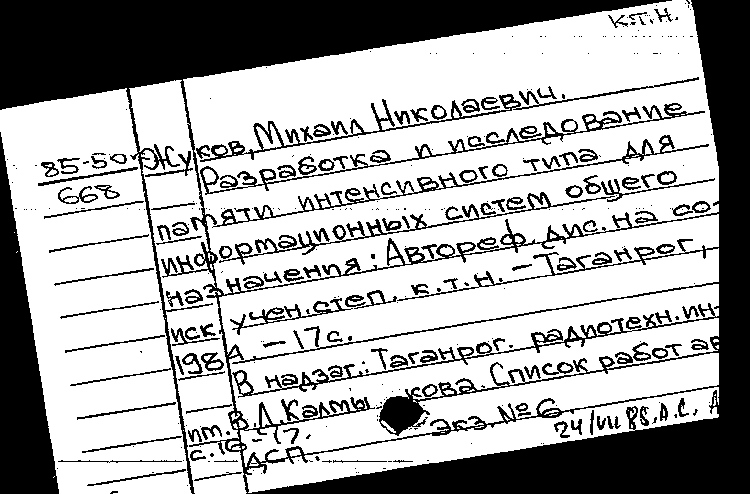 к.т.н.
85-50
668
Жуков, Михаил Николаевич.
Разработка и исследование
памяти интенсивного типа для
информационных систем общего
назначения: Автореф. дис. на со-
иск. учен. степ. к.т.н. – Таганрог,
1984. – 17 с.
В надзаг.: Таганрог. радиотехн. ин-
т. В.Д. Калмыкова. Список работ ав
с. 16-17.
ДСП. Экз. № 6.
24/VII 85. Д.С. А